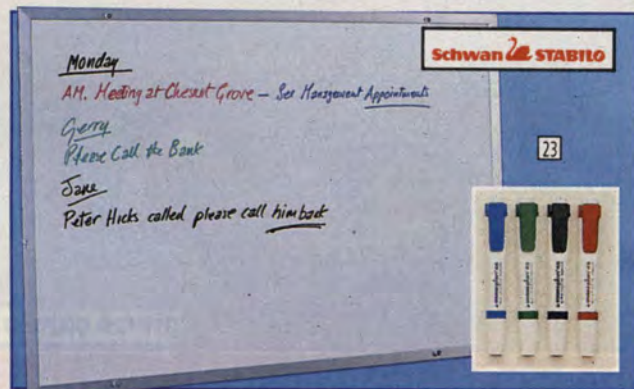 Schwan STABILO
Monday
AM. Meeting at Chesnut Grove – See Management Appointments
Gerry
Please Call the Bank
23
Jane
Peter Hicks called please call him back